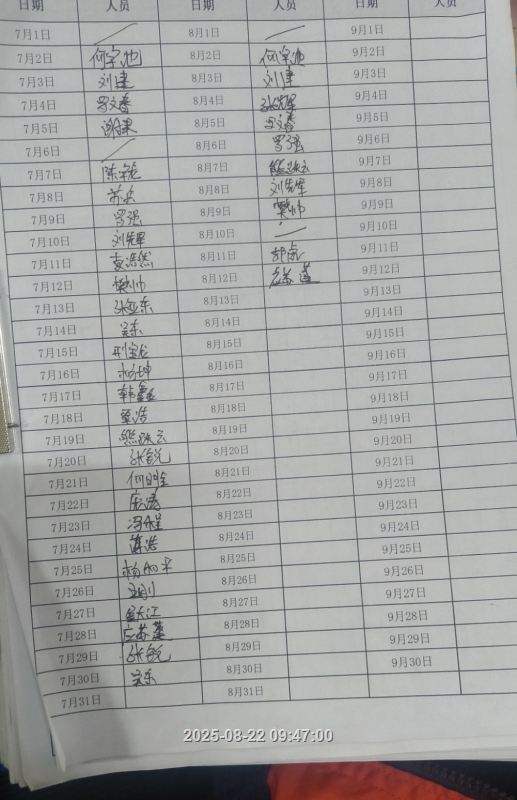 日期 人员 日期 人员 日期 人员
7月1日 / 8月1日 / 9月1日
7月2日 何宗池 8月2日 何宗池 9月2日
7月3日 刘建 8月3日 刘建 9月3日
7月4日 罗文香 8月4日 9月4日
7月5日 8月5日 罗文香 9月5日
7月6日 / 8月6日 罗强 9月6日
7月7日 8月7日 熊洪云 9月7日
7月8日 8月8日 刘先军 9月8日
7月9日 罗强 8月9日 樊帅 9月9日
7月10日 刘先军 8月10日 / 9月10日
7月11日 袁浩然 8月11日 9月11日
7月12日 樊帅 8月12日 9月12日
7月13日 张亚东 8月13日 9月13日
7月14日 吴东 8月14日 9月14日
7月15日 8月15日 9月15日
7月16日 杨坤 8月16日 9月16日
7月17日 韩鑫 8月17日 9月17日
7月18日 8月18日 9月18日
7月19日 熊洪云 8月19日 9月19日
7月20日 张锐 8月20日 9月20日
7月21日 8月21日 9月21日
7月22日 8月22日 9月22日
7月23日 8月23日 9月23日
7月24日 8月24日 9月24日
7月25日 8月25日 9月25日
7月26日 8月26日 9月26日
7月27日 8月27日 9月27日
7月28日 8月28日 9月28日
7月29日 张锐 8月29日 9月29日
7月30日 吴东 8月30日 9月30日
7月31日 8月31日
2025-08-22 09:47:00